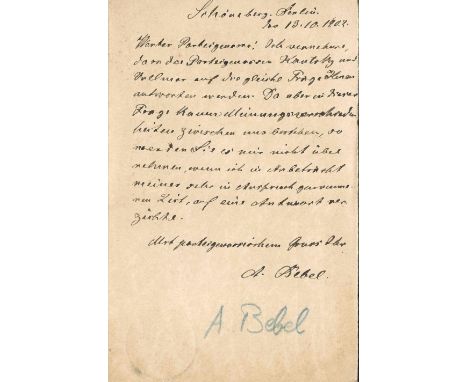 Schöneberg-Berlin
den 13.10.1902.
Werter Parteigenosse! Ich vernehme,
dass die Parteigenossen Kautsky und
Vollmar auf die gleiche Frage Ihnen
antworten werden. Da aber in dieser
Frage kaum Meinungsverschieden
heiten zwischen uns bestehen, so
werden Sie es mir nicht übel
nehmen, wenn ich in Anbetracht
meiner sehr in Anspruch genomme
nen Zeit, auf eine Antwort ver
zichte.
Mit parteigenössischem Gruss Ihr
A. Bebel.
A Bebel